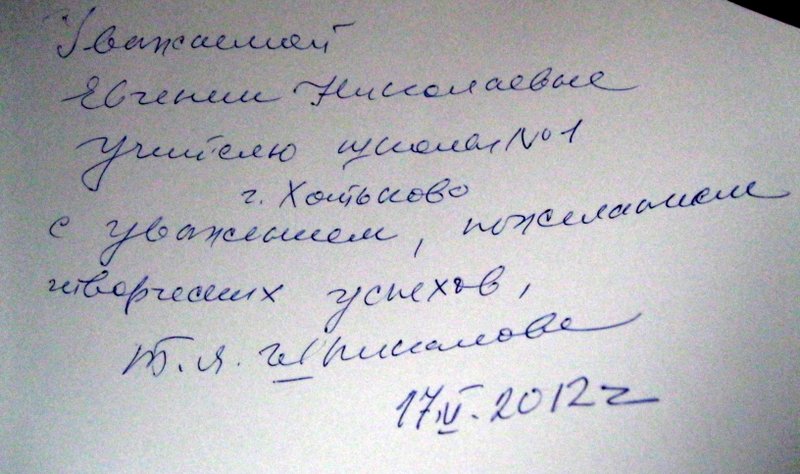 Уважаемой
Евгении Николаевне
Учителю школы №1
г. Хотьково
с уважением, пожеланием
творческих успехов,
Т. Я.
17.V.2012г